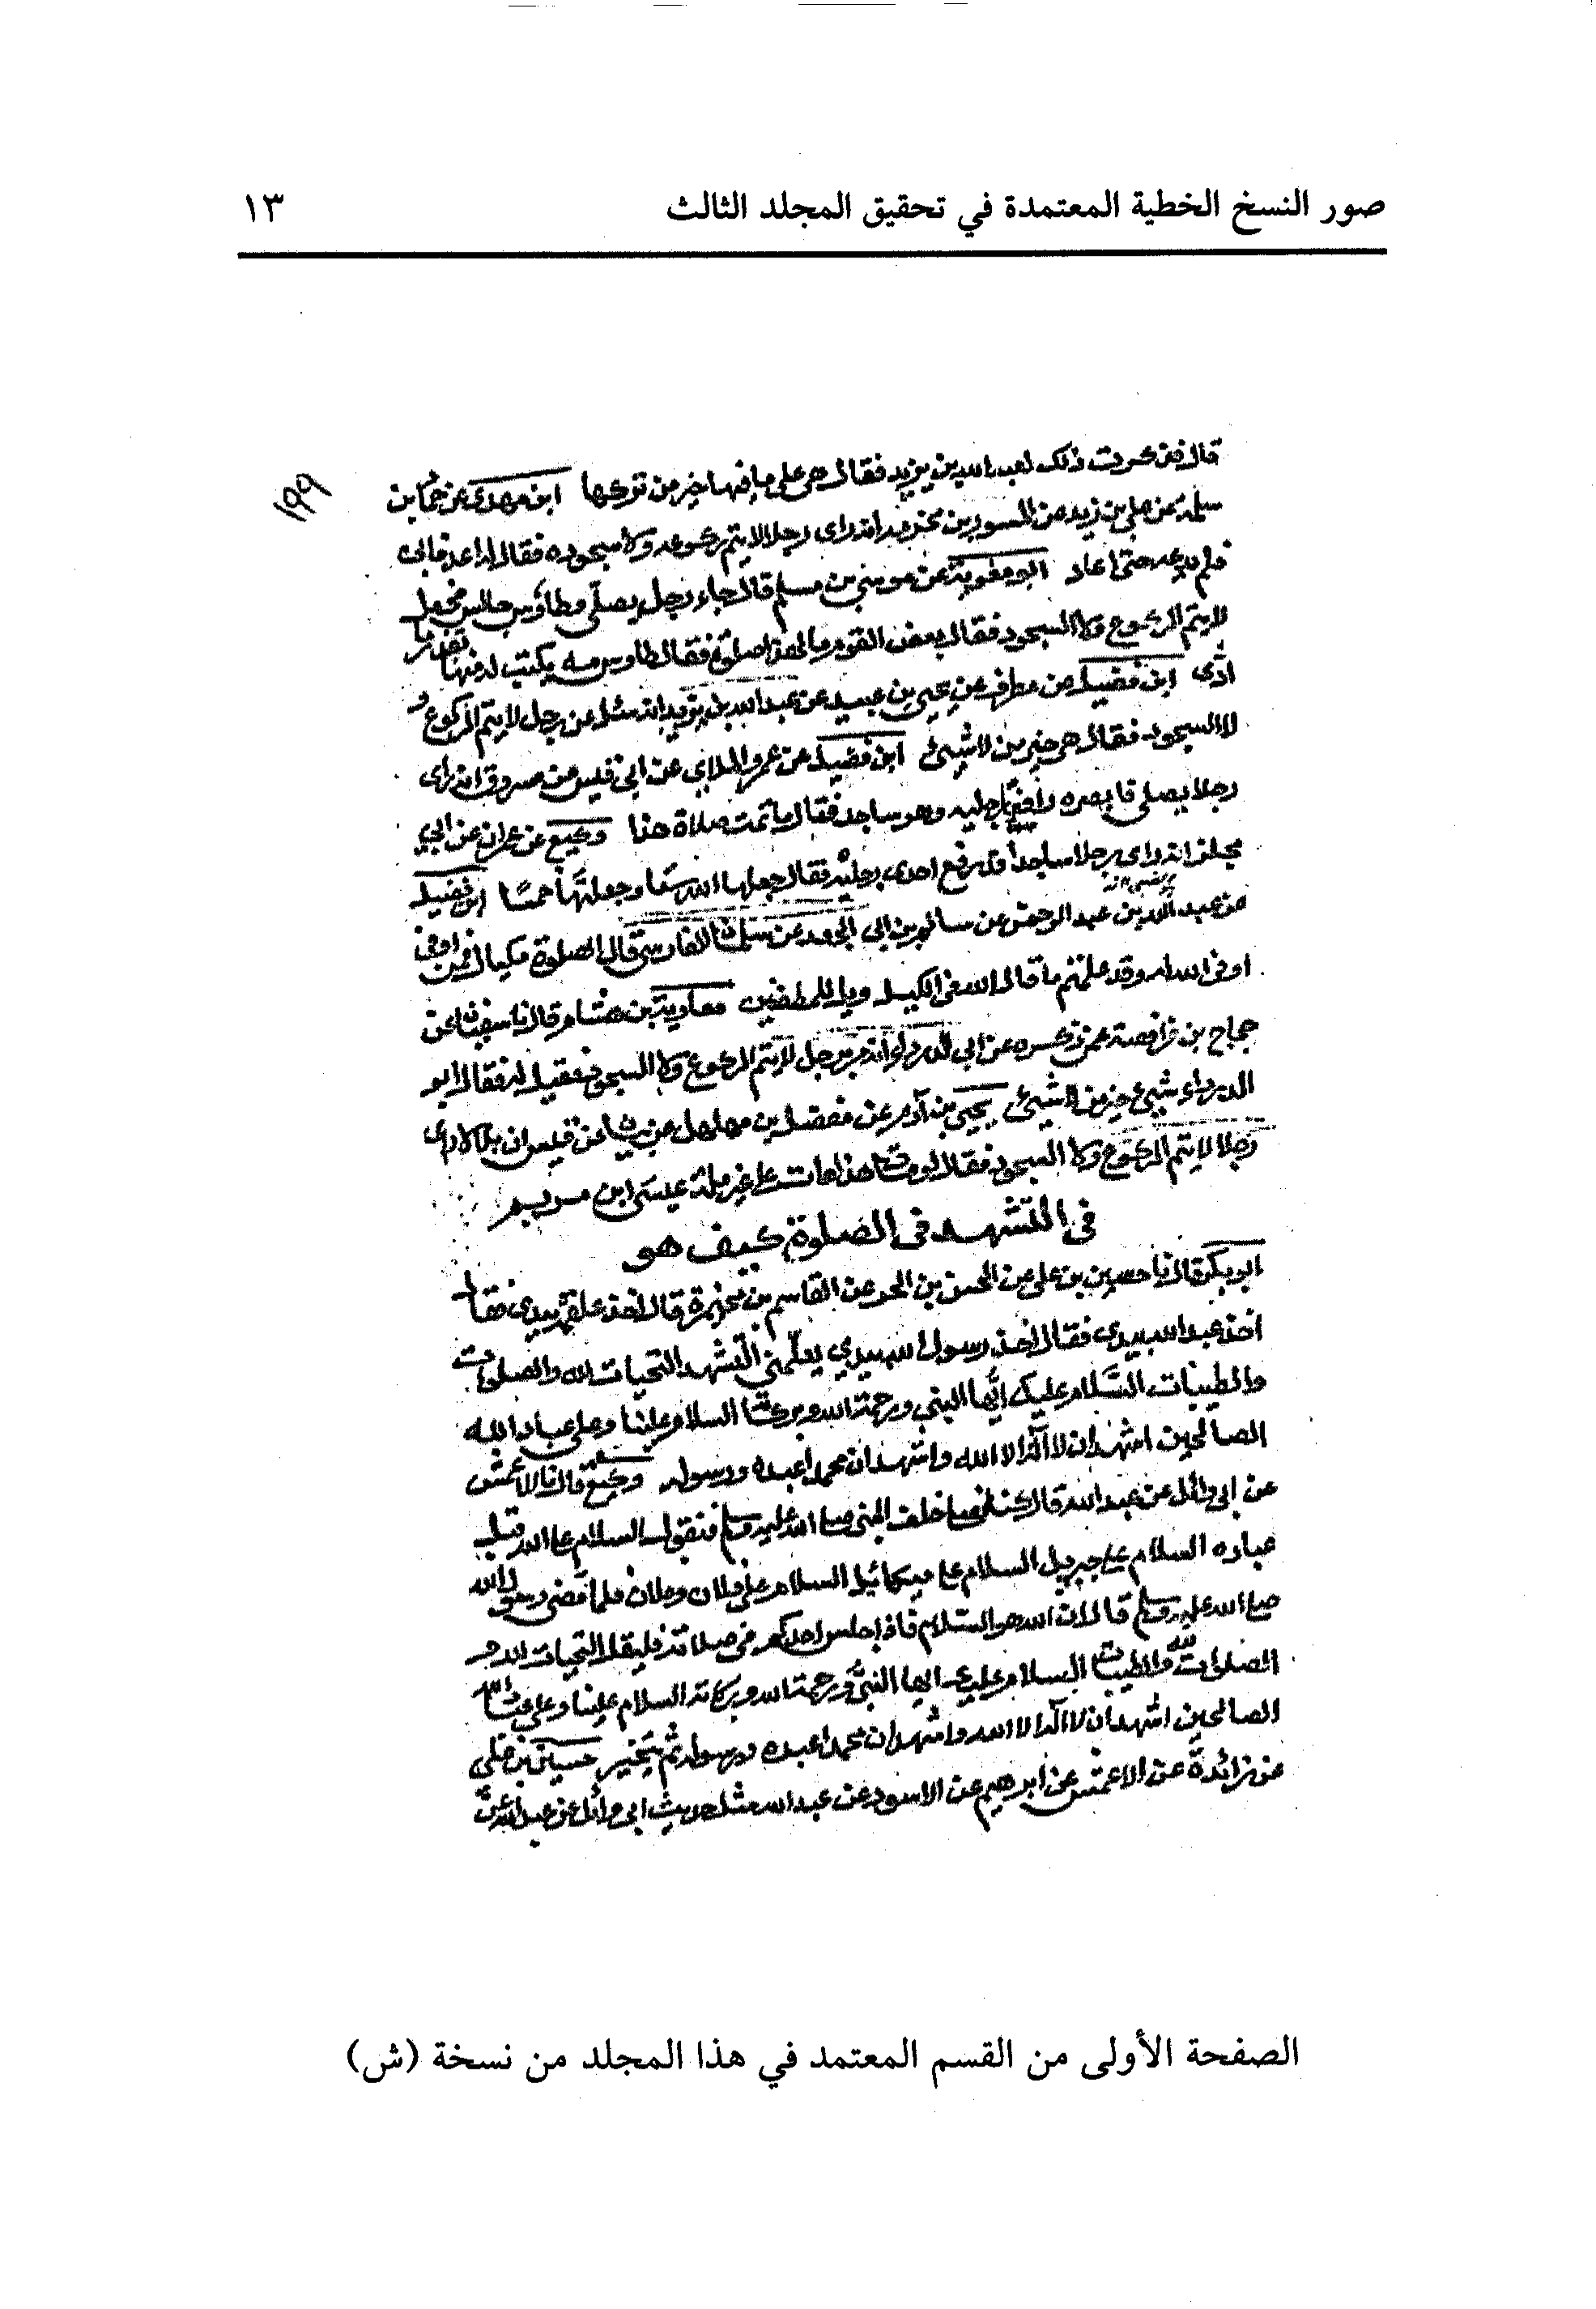 صور النسخ الخطية المعتمدة في تحقيق المجلد الثالث ١٣
١٩٩
قال فذكرت ذلك لعبد الله بن يزيد فقال هي على ما فيها خير من تركها ابن مهدي عن حماد بن
سلمة عن علي بن زيد عن المسور بن مخرمة انه راى رجلا لا يتم ركوعه ولا سجوده فقال له اعد فابى
فلم يدعه حتى اعاد ابو معوية عن موسى بن مسلم قال جاء رجل يصلي وطاوس جالس فجعل
لا يتم الركوع ولا السجود فقال بعض القوم ما لهذا صلوة فقال طاوس مه يكتب له منها بقدر ما
ادى ابن فضيل عن مطرف عن يحيى بن عبيد عن عبد الله بن يزيد انه سئل عن رجل لا يتم الركوع و
لا السجود فقال هي خير من لا شيئ ابن فضيل عن عمرو الملاي عن ابي قيس عن مسروق انه راى
رجلا يصلي فابصره رافعا رجليه وهو ساجد فقال ما تمت صلاة هذا وكيع عن عمران عن ابي
مجلز انه راى رجلا ساجدا قد رفع احدى رجليه فقال جعلها الله ستا وجعلتها خمسا ابن فضيل
عن عبد الله بن عبد الرحمن عن سالم بن ابي الجعد عن سلمان الفارسي قال الصلوة مكيال فمن اوفى
اوفى الله له وقد علمتم ما قال الله في الكيل ويل للمطففين معاوية بن هشام قال نا سفيان عن
حجاج بن فرافصة عمن ذكره عن ابي الدرداء انه مر برجل لا يتم الركوع ولا السجود فقيل له فقال ابو
الدرداء شيئ خير من لا شيئ يحيى بن آدم عن مفضل بن مهلهل عن بيان عن قيس ان بلالا راى
رجلا لا يتم الركوع ولا السجود فقال لو مات هذا مات على غير ملة عيسى ابن مريم
في التشهد في الصلوة كيف هو
ابو بكر قال نا حسين بن علي عن الحسن بن الحر عن القاسم بن مخيمرة قال اخذ علقمة بيدي فقال
اخذ عبد الله بيدي فقال اخذ رسول الله بيدي يعلمني التشهد التحيات لله والصلوات
والطيبات السلام عليك ايها النبي ورحمة الله وبركاته السلام علينا وعلى عباد الله
الصالحين اشهد ان لا اله الا الله واشهد ان محمدا عبده ورسوله وكيع قال نا الاعمش
عن ابي وائل عن عبد الله قال كنا خلف النبي صلى الله عليه وسلم فنقول السلام على الله قبل
عباده السلام على جبريل السلام على ميكائيل السلام على فلان وفلان فلما قضى رسول الله
صلى الله عليه وسلم قال ان الله هو السلام فاذا جلس احدكم في صلاته فليقل التحيات لله و
الصلوات لله والطيبات السلام عليك ايها النبي ورحمة الله وبركاته السلام علينا وعلى عباد الله
الصالحين اشهد ان لا اله الا الله واشهد ان محمدا عبده ورسوله ثم يتخير حسين بن علي
عن زائدة عن الاعمش عن ابرهيم عن الاسود عن عبد الله مثل حديث ابي وائل عن عبد الله عن
الصفحة الأولى من القسم المعتمد في هذا المجلد من نسخة (ش)